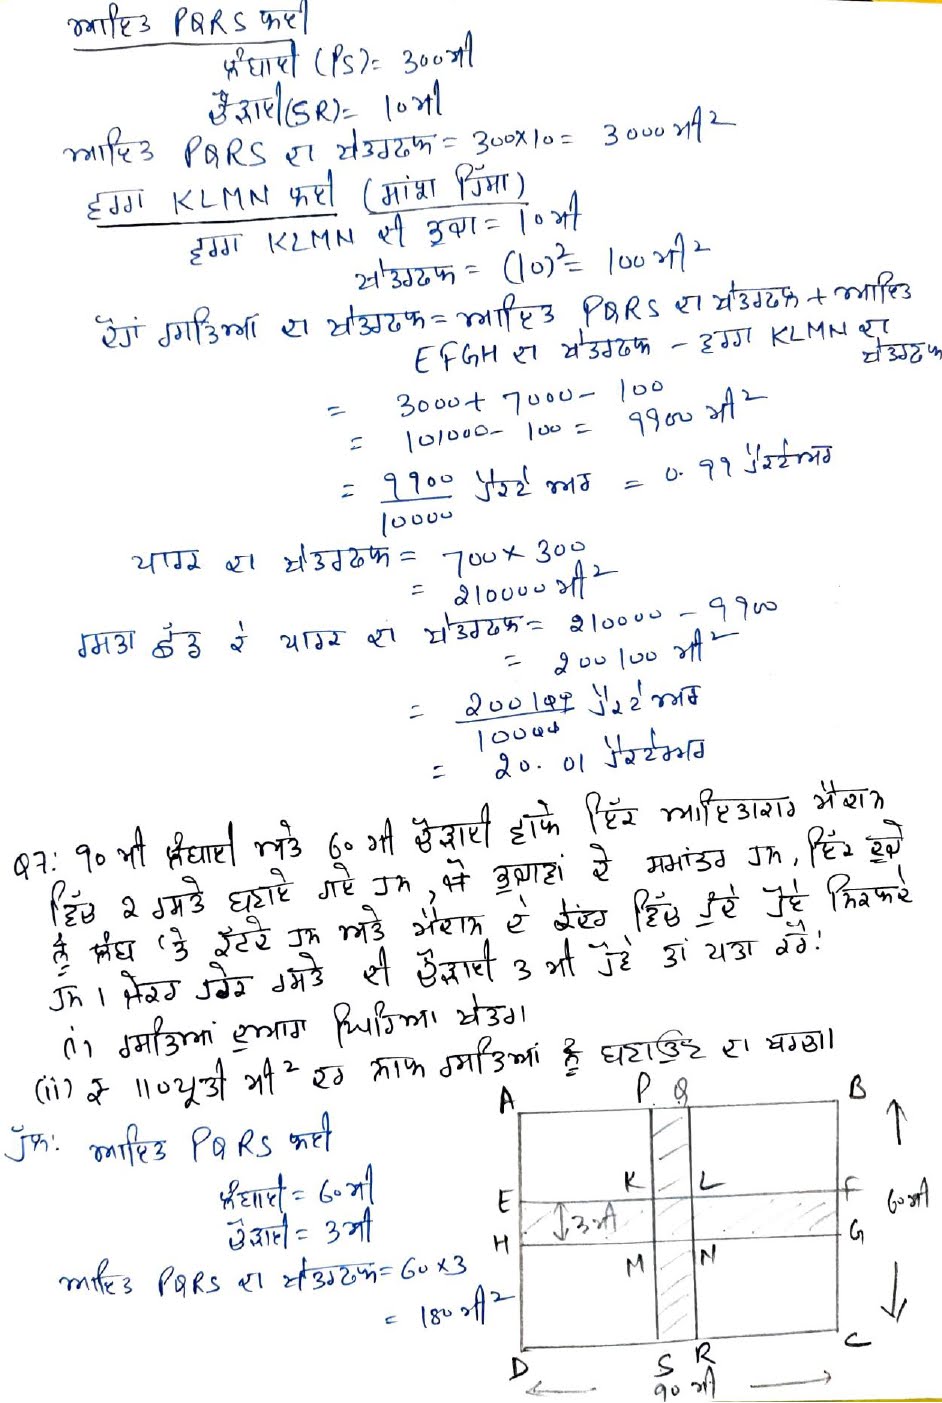 ਆਇਤ PQRS ਲਈ
ਲੰਬਾਈ (PS)= 300ਮੀ
ਚੌੜਾਈ(SR)= 10ਮੀ
ਆਇਤ PQRS ਦਾ ਖੇਤਰਫਲ = 300×10 = 3000 ਮੀ²
ਵਰਗ KLMN ਲਈ (ਸਾਂਝਾ ਹਿੱਸਾ)
ਵਰਗ KLMN ਦੀ ਭੁਜਾ = 10ਮੀ
ਖੇਤਰਫਲ = (10)² = 100ਮੀ²
ਦੋਹਾਂ ਰਸਤਿਆਂ ਦਾ ਖੇਤਰਫਲ = ਆਇਤ PQRS ਦਾ ਖੇਤਰਫਲ + ਆਇਤ
EFGH ਦਾ ਖੇਤਰਫਲ - ਵਰਗ KLMN ਦਾ
ਖੇਤਰਫਲ
= 3000+ 7000- 100
= 101000- 100 = 9900 ਮੀ²
= 9900/10000 ਹੈਕਟੇਅਰ = 0.99 ਹੈਕਟੇਅਰ
ਪਾਰਕ ਦਾ ਖੇਤਰਫਲ = 700× 300
= 210000 ਮੀ²
ਰਸਤਾ ਛੱਡ ਕੇ ਪਾਰਕ ਦਾ ਖੇਤਰਫਲ = 210000 - 9900
= 200100 ਮੀ²
= 200100/10000 ਹੈਕਟੇਅਰ
= 20.01 ਹੈਕਟੇਅਰ
Q7: 90 ਮੀ ਲੰਬਾਈ ਅਤੇ 60 ਮੀ ਚੌੜਾਈ ਵਾਲੇ ਇੱਕ ਆਇਤਾਕਾਰ ਮੈਦਾਨ
ਵਿੱਚ 2 ਰਸਤੇ ਬਣਾਏ ਗਏ ਹਨ, ਜੋ ਭੁਜਾਵਾਂ ਦੇ ਸਮਾਂਤਰ ਹਨ, ਇੱਕ ਦੂਜੇ
ਨੂੰ ਲੰਬ 'ਤੇ ਕੱਟਦੇ ਹਨ ਅਤੇ ਮੈਦਾਨ ਦੇ ਕੇਂਦਰ ਵਿੱਚੋਂ ਹੁੰਦੇ ਹੋਏ ਨਿਕਲਦੇ
ਹਨ। ਜੇਕਰ ਹਰੇਕ ਰਸਤੇ ਦੀ ਚੌੜਾਈ 3 ਮੀ ਹੋਵੇ ਤਾਂ ਪਤਾ ਕਰੋ:
(i) ਰਸਤਿਆਂ ਦੁਆਰਾ ਘਿਰਿਆ ਖੇਤਰ।
(ii) ₹ 110 ਪ੍ਰਤੀ ਮੀ² ਦਰ ਨਾਲ ਰਸਤਿਆਂ ਨੂੰ ਬਣਾਉਣ ਦਾ ਖਰਚਾ।
ਹੱਲ: ਆਇਤ PQRS ਲਈ
ਲੰਬਾਈ = 60ਮੀ
ਚੌੜਾਈ = 3ਮੀ
ਆਇਤ PQRS ਦਾ ਖੇਤਰਫਲ = 60×3
= 180 ਮੀ²
A P Q B
E K L F
3ਮੀ 60ਮੀ
H M N G
D S R C
90 ਮੀ